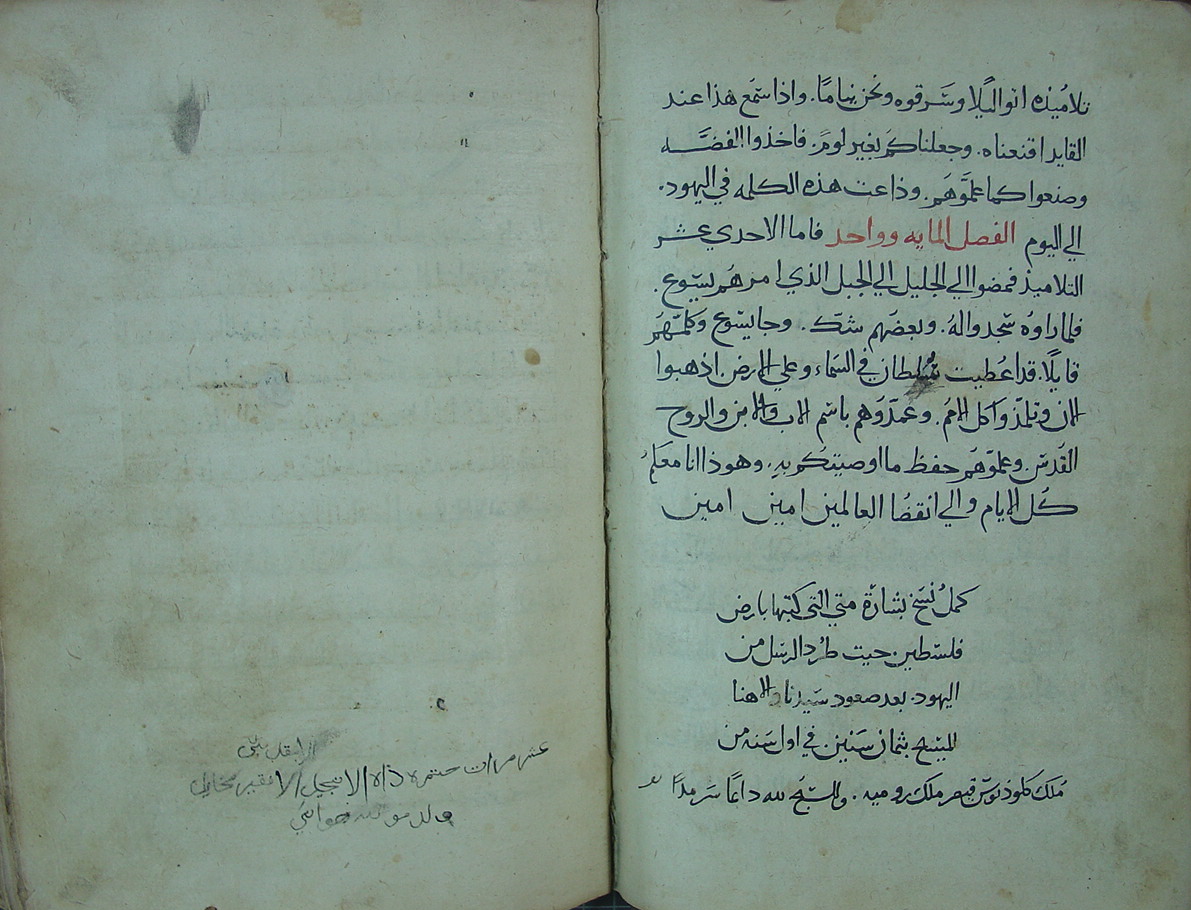 تلاميذه اتوا ليلًا وسَرقوه ونحن نيامًا. واذا سمَع هذا عند
القايد اقنعناه. وجعلناكم بغير لومً. فاخذوا الفضَّه
وصنعوا كما علموَهم. وذاعت هذه الكلمه في اليهود.
الي اليوم الفصل المايه وواحد فاما الاحدي عشر
التلاميذ فمضوا الي الجليل الي الجبل الذي امرهُم يسَوع.
فلما راوهُ سَجدوا لهُ. وبعضَهم شكَ. وجا يسَوع وكلمَهُم
قايلًا. قد اعُطيت سُلطان في السَماء وعلي الارض. اذهبوا
الان وتلمذَوا كل الامُم. وعمدَوَهم باسَم الاب والابن والروح
القدُس. وعلموَهُم حفظ ما اوصيتكم به. وهوذا انا معَكمُ
كُل الايام والي انقضُا العالمين امين امين
كملُ نُسَخ بشارَة متي التي كتبَها بارض
فلسَطين. حيت طرُد الرسَل من
اليهود. بعد صعود سَيدنا والاهنا
المسَيح بثمان سَنين. في اول سَنه من
مُلك كلوذيوسَ قيصر ملك روميه. والسَبحَ لله داعًا سَرمداً
عشر مرات
الانجيل
ولد